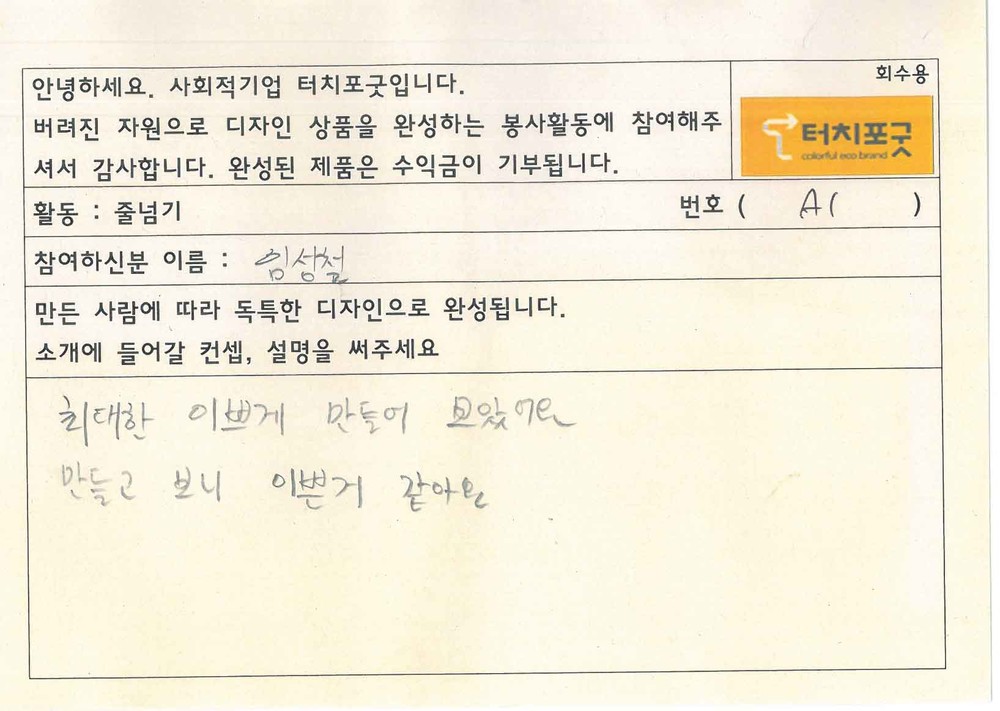 회수용
안녕하세요. 사회적기업 터치포굿입니다.
버려진 자원으로 디자인 상품을 완성하는 봉사활동에 참여해주
셔서 감사합니다. 완성된 제품은 수익금이 기부됩니다.
터치포굿
colorful eco brand
활동 : 줄넘기
번호 ( A( )
참여하신분 이름 : 임성철
만든 사람에 따라 독특한 디자인으로 완성됩니다.
소개에 들어갈 컨셉, 설명을 써주세요
최대한 이쁘게 만들어 보았어요
만들고 보니 이쁜거 같아요